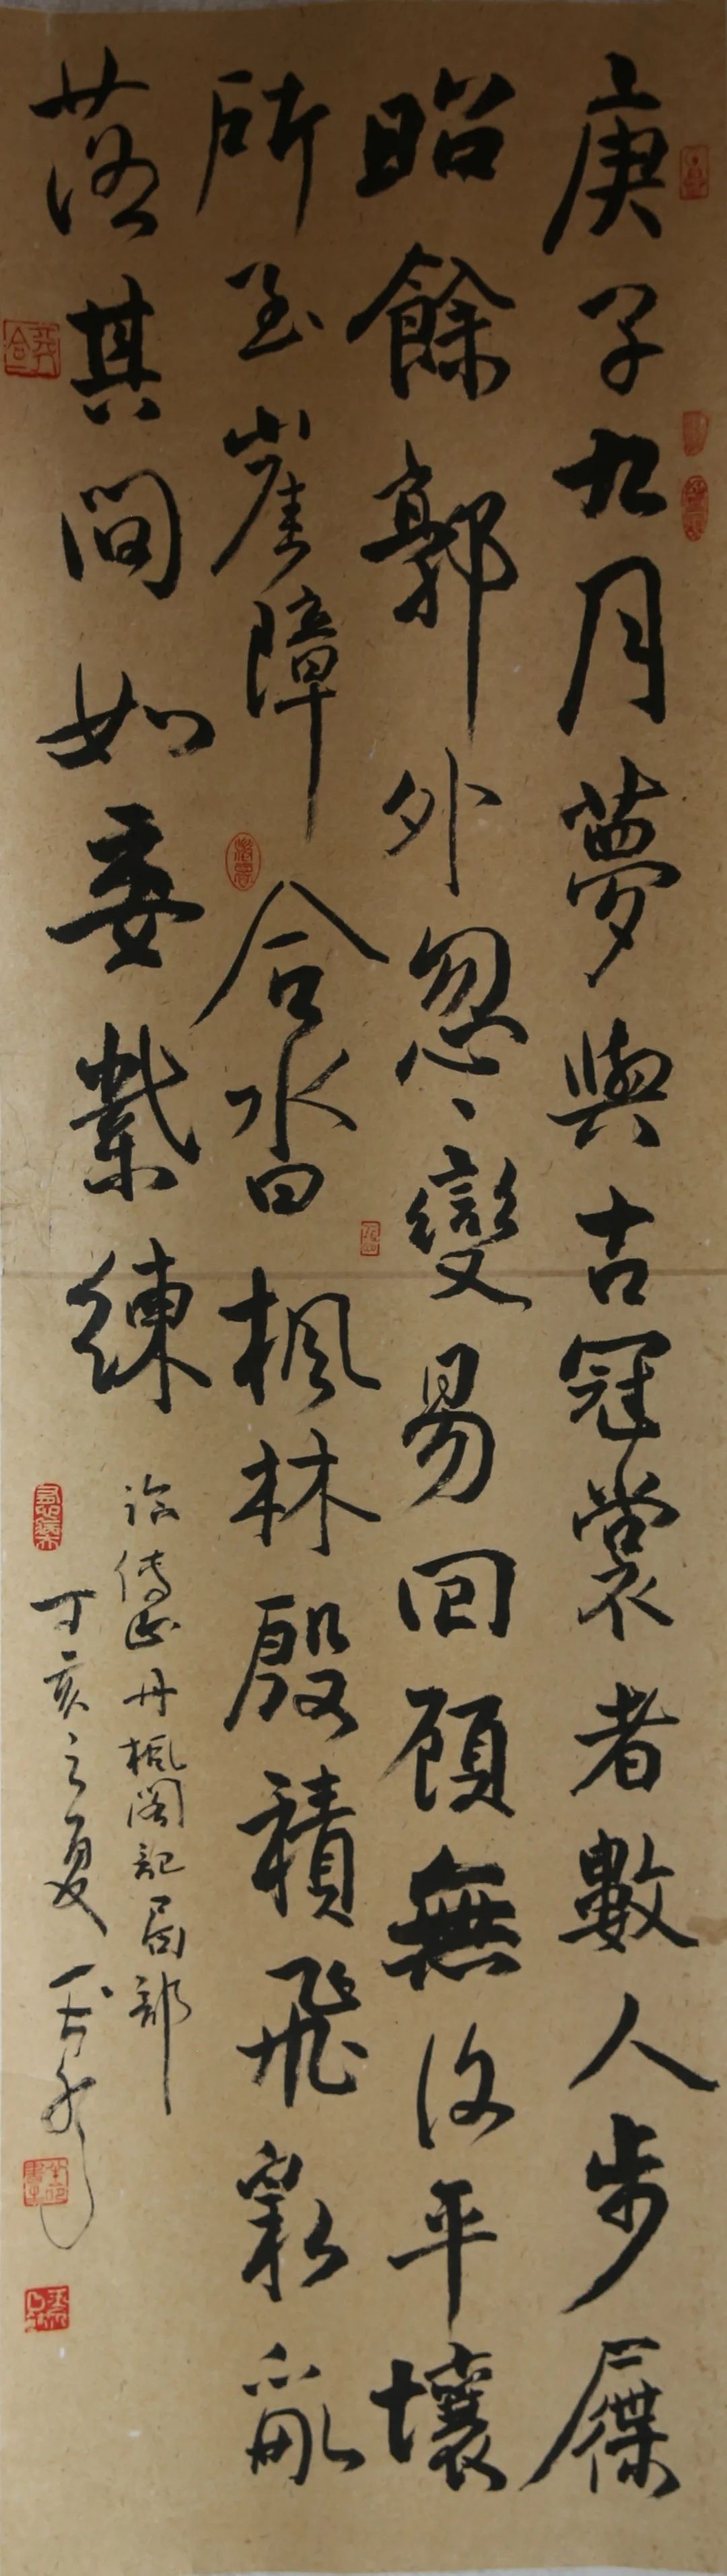 庚子九月夢與古冠裳者數人步屧
昭餘郭外忽〻變易回顧無復平壤
所至崖障合水沓楓林殷積飛彩亂
落其間如委縈練
傅山丹楓閣記局部
丁亥之夏